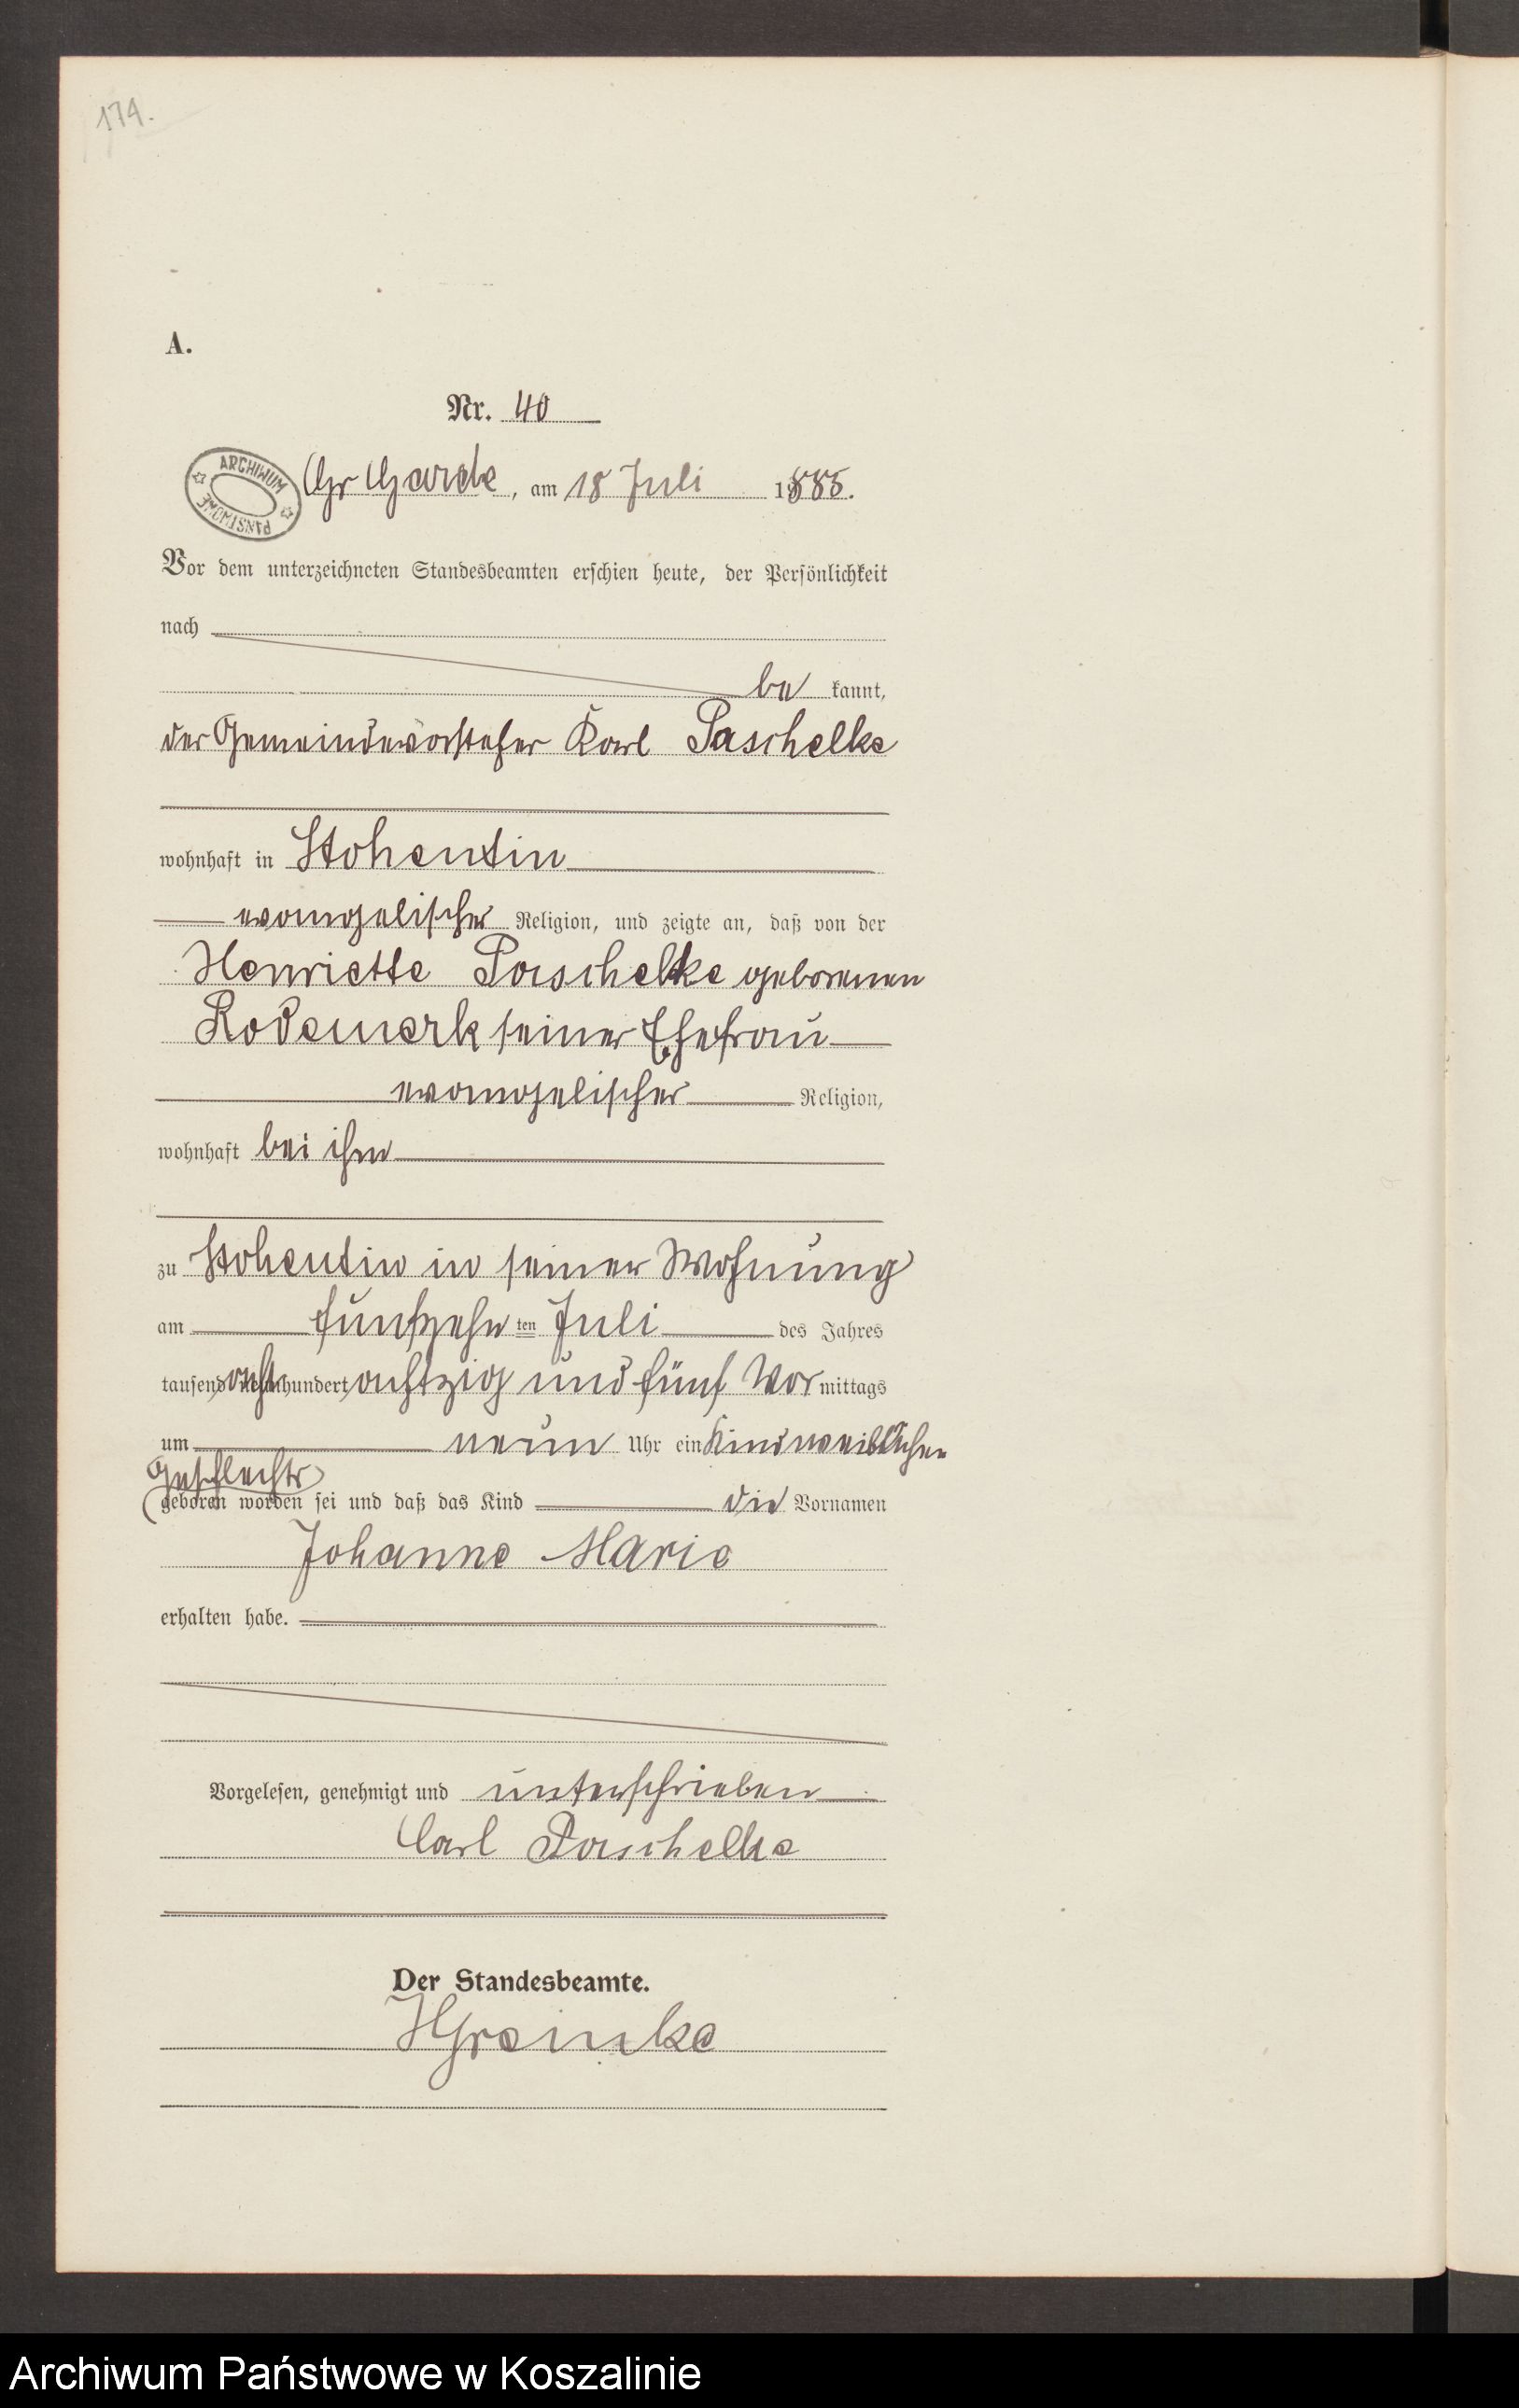 174.
A.
Nr. 40
ARCHIWUM PAŃSTWOWE
Gr Garde, am 18 Juli 1885.
Vor dem unterzeichneten Standesbeamten erschien heute, der Persönlichkeit
nach
be kannt,
der Gemeindevorsteher Karl Paschelke
wohnhaft in Stohentin
evangelischer Religion, und zeigte an, daß von der
Henriette Paschelke geborenen
Rodemerk seiner Ehefrau
evangelischer Religion,
wohnhaft bei ihm
zu Stohentin in seiner Wohnung
am fünfzehn ten Juli des Jahres
tausend acht hundert achtzig und fünf Vor mittags
um neun Uhr ein Kind weiblichen
Geschlechts
geboren worden sei und daß das Kind die Vornamen
Johanne Marie
erhalten habe.
Vorgelesen, genehmigt und unterschrieben
Carl Paschelke
Der Standesbeamte.
HGreinke
Archiwum Państwowe w Koszalinie